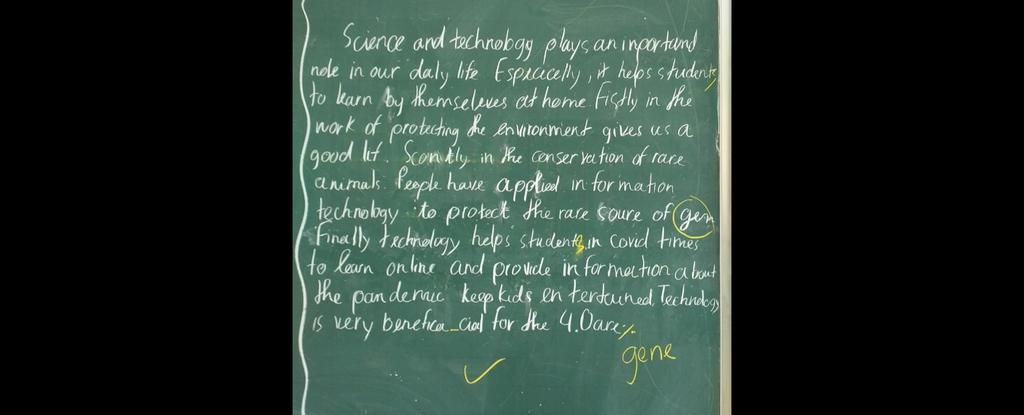 Science and technology plays an inportand
nole in our daly life Espicacelly, it helps students
to learn by themseleves at home Fistly in the
work of protecting the environment gives us a
good lif. Scantly in the conservation of rare
animals. People have applied information
technology to protect the rare soure of gen
Finally technology helps students in covid times
to learn online and provide information about
the pandemic keep kids entertained, Technology
is very benefica_cial for the 4.0 are
gene